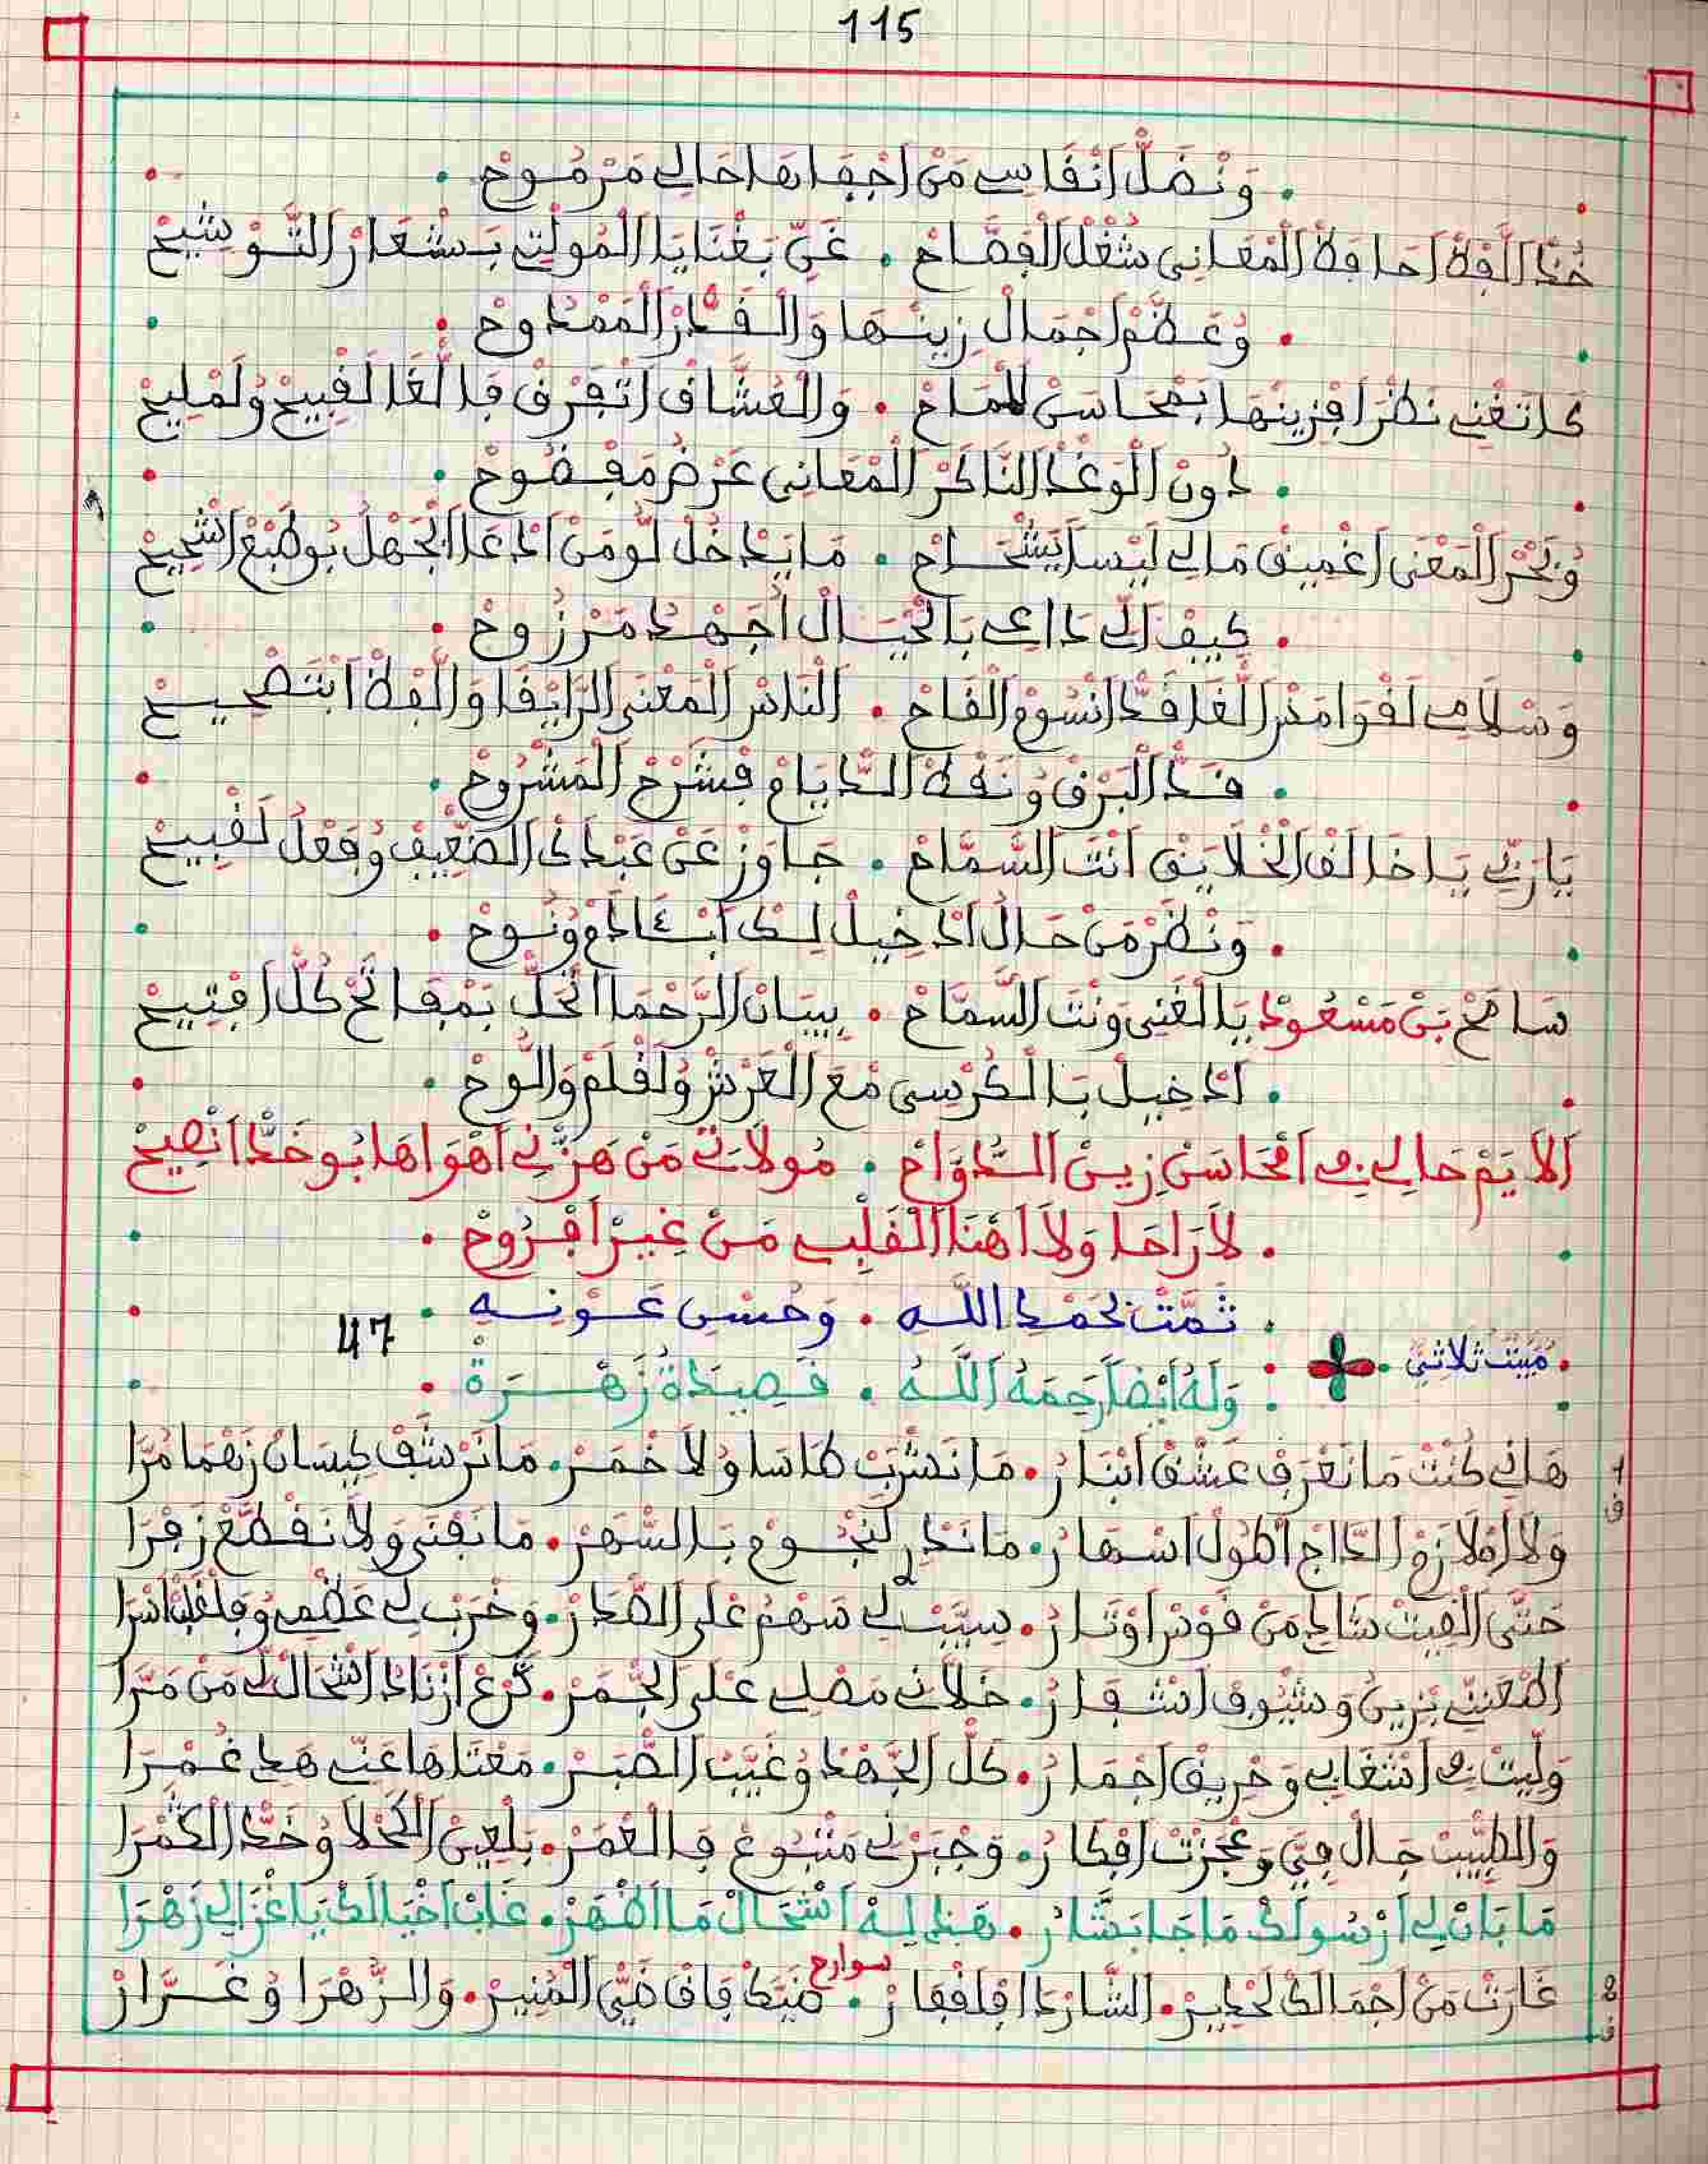 115
وَنْضَلّْ اَنْفَاسِي مَنْ اجْفَاهَا حَالِي مَرْمُوحْ
خُذْ اللَّفْظْ احَافِظْ الْمَعَانِي شُغْلْ الْفَصَّاحْ . غَنِّي بَغْنَايَا الْمُولْتِي بَشْعَارْ التَّوْشِيحْ
وُعَظَّمْ اجْمَالْ زِينْهَا وَالْقَدّْرْ الْمَمْدُوحْ
كَاتَغْنِي نَظْرَا فْزِينْهَا بَمْحَاسَنْ للمَاحْ . وَالْعُشَّاقْ اتْفَرْقْ فَاللّغَا لَقْبِيحْ وُلَمْلِيحْ
دُونْ الْوَغْدْ النَّاكَرْ الْمَعَانِي عَرْضُ مَفْضُوحْ
وُبَحْرْ الْمَعْنَى اغْمِيقْ مَالِي لِيْسَ ايَشْحَاحْ . مَا يَدْخُلْ لُو مَنْ ادْعَا الْجَهْلْ بُوطَبْعْ اشْحِيحْ
كِيفْ الِّي دَاعِي بَالْخَيَالْ اجَهْدُ مَرْزُوحْ
وَسْلَامِي لَقْوَامَدْ اللّغَا قَدّْ انْسُومْ الْقَاحْ . النَّادْرْ الْمَعْنَى الرَّايْقَا وَاللَّفْظْ ابْتَصْحِيحْ
قَدّْ الْبَرْقْ وُنَقْطْ الدِّيَامْ فْشَرْحْ الْمَشْرُوحْ
يَا رَبِّي يَا خَالَقْ الْخْلَايَقْ انْتَ السَّمَّاحْ . جَاوَزْ عَنْ عَبْدَكْ الضّْعِيفْ وُفَعْلُ لَقْبِيحْ
وَنْظَرْ مَنْ حَالْ ادْخِيلْ لِكْ ابْئَادَمْ وُنُوحْ
سَامَحْ بَنْ مَسْعُودْ يَا الْغَنِي وَنْتَ السَّمَّاحْ . بِيبَانْ الرَّحْمَا اتْحَلّْ بَمْفَاتَحْ كُلّْ افْتِيحْ
ادْخِيلْ بَالْكُرْسِي مْعَ الْعَرْشْ وُلَقْلَمْ وَاللُّوحْ
اَلَايَمْ حَالِي فِي امْحَاسَنْ زِينْ الدُّوَاحْ . مُولَاتِي مَنْ هَزّْنِي اهْوَاهَا بُوخَدّْ انْصِيحْ
لَا رَاحَا وَلَا اهْنَا الْقَلْبِي مَنْ غِيرْ افْرُوحْ
تَمَّتْ بحَمْدِ اللَّهِ . وَحُسْنِ عَوْنِهِ
47
مُبَيَّتْ ثُلَاثِيّ
وَلَهُ أيْضًا رَحِمَهُ اللَّهُ . قَصِيدَةُ زَهْرَةْ
هَانِي كُنْتْ مَا نَعْرَفْ عَشْقْ ابْنَارُ . مَا نَشْرَبْ كَاسَا وُلَا خْمَرْ . مَا نَرْشَفْ كِيسَانْ زَهْمَا مُرَّا
وَلَا املَازَمْ الدَّاجْ اطُولْ اسْهَارُ . مَا نَدْرِي لَنْجُومْ بَالسّْهَرْ . مَا نَفْنَى وَلَا نَقْطَعْ زَفْرَا
حَتَّى الْقِيتْ شَادِي مَنْ قَوْسْ اوْتَارُ . سِيَّبْ لِي سَهْمُ عْلَى الصّْدَرْ . وَخْرَبْ لِي عَظْمِي وَفْلَغْلَبْ اسْرَا
اطْعَنِّي بْزِينُ وَسْيُوفْ اشْفَارُ . خَلَّانِي مَصْلِي عْلَى الْجْمَرْ . كَرْعْ ازْنَادْ اشْحَالْ لِي مَنْ مَرَّا
وَلِّيتْ فِي اشْغَابِي وَحْرِيقْ اجْمَارُ . كَلّْ الْجَهْدْ وُغَيَّبْ الصّْبَرْ . مَعْتَاهَا عَنِّي هَدِي غُمْرَا
وَالطَّبِيبْ جَالْ فِيَّ وَعْجَزْتْ افْكَارُ . وَجْبَرْنِي مَتْبُوعْ فَالْعْمَرْ . بَلْعِينْ الْكَحْلَا وُخَدّْ الْكَمْرَا
مَا بَانْ لِي ارْسُولَكْ مَا جَا بَشَّارُ . هَدِي لِيهْ اشْحَالْ مَا اظْهَرْ . غَابْ اخْيَالَكْ يَا غْزَالِي زَهْرَا
سوارح
غَارَتْ مَنْ اجْمَالَكْ لَحْدِيرْ . الشَّارْدَا فْلَقْفَارْ . ضَيَّكْ فَاقْ ضَيّْ الْمُنِيرْ . وَالزَّهْرَا وُغَرَّارْ